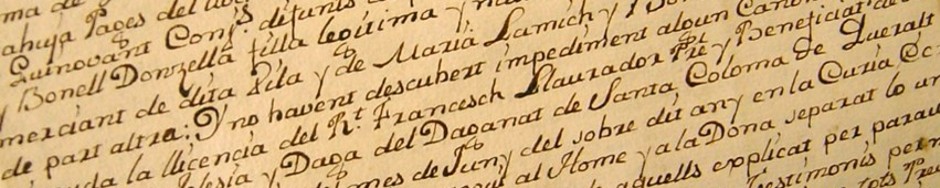 ma de
ahuja Pages del
Guinovart Conj.s defunts
y Bonell Donzella filla legitima y na
merciant de dita Vila y de Maria Lamich y
de part altra: Y no havent descubert impediment algun Canon
la llicencia del R.t Francesch Llaurador Pre y Beneficiat de
Iglesia y Daga del Daganat de Santa Coloma de Queralt
mes de Juny del sobre dit any en la Curia Ec
al Home y a la Dona separat lo un
aquells explicat per parau
Testimonis per
tots Pre